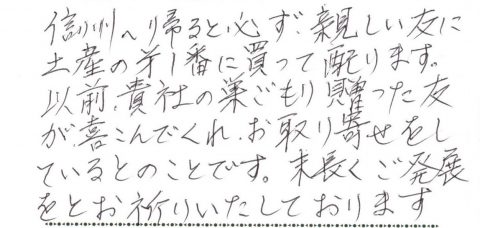 信州へ帰ると必ず、親しい友に
土産の㐧1番に買って配ります。
以前、貴社の巣ごもり贈った友
が喜こんでくれ、お取り寄せをし
ているとのことです。末長くご発展
をとお祈りいたしております